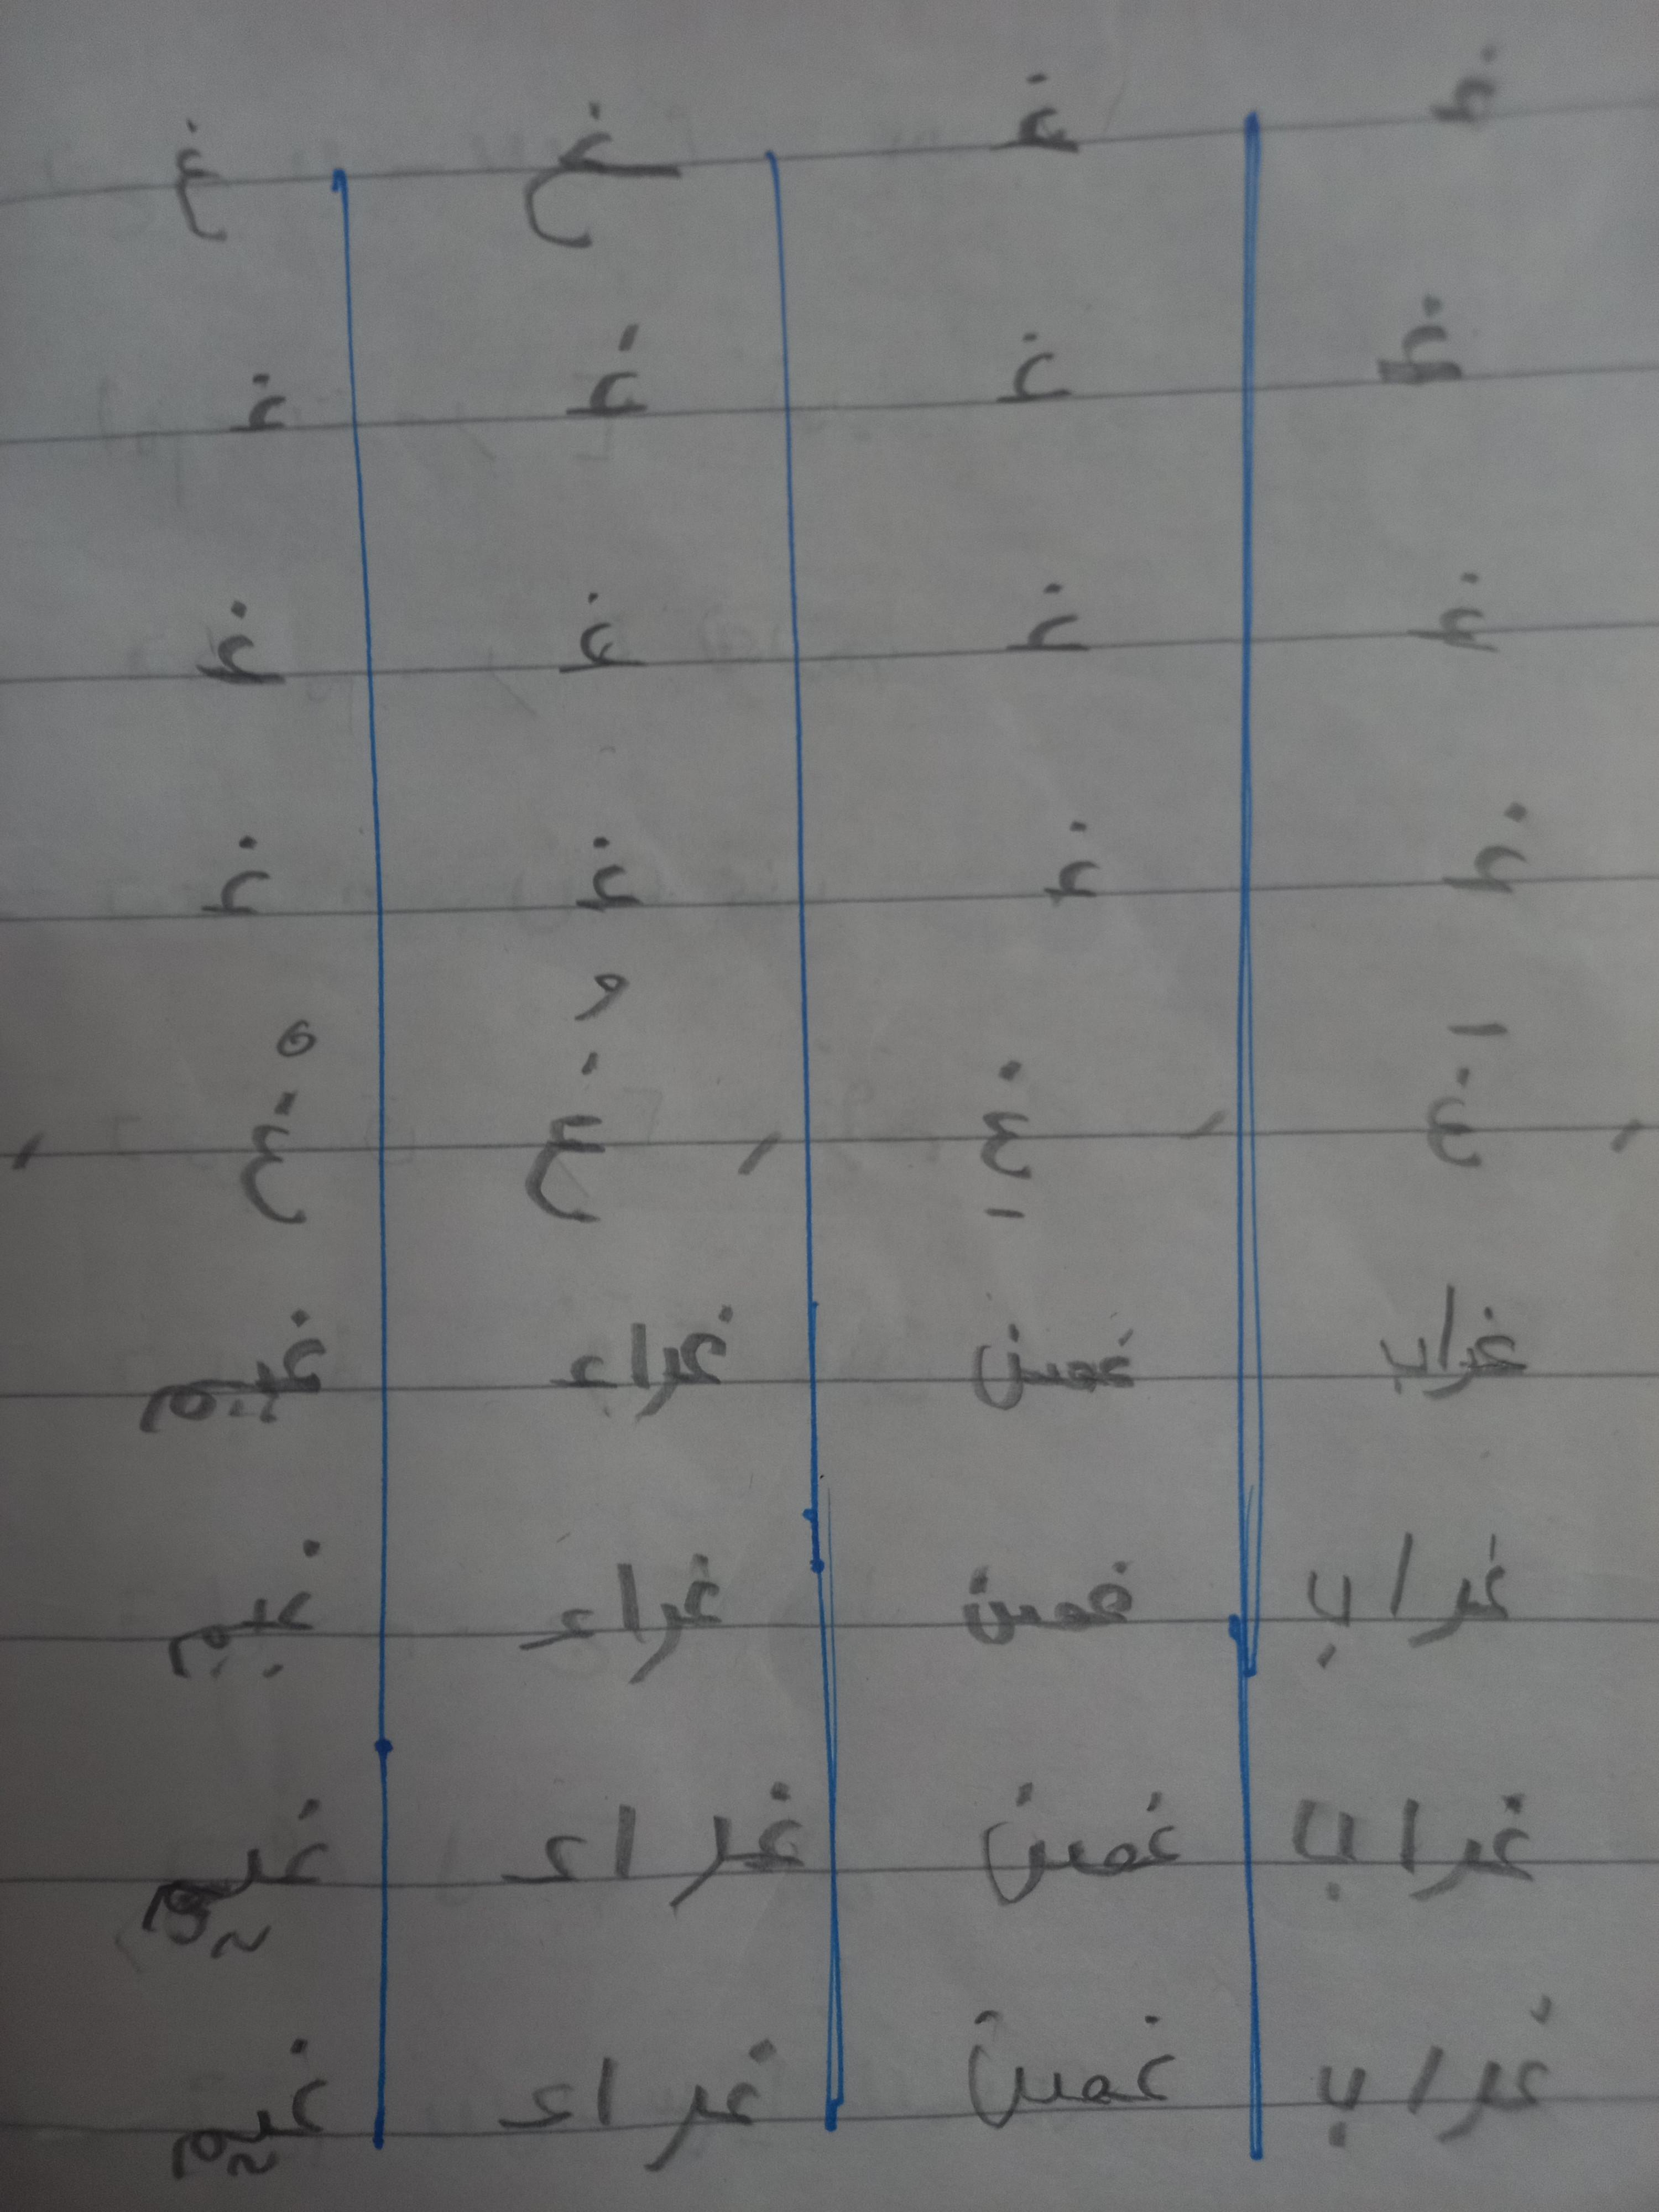 غ غ غ غ
غ غ غ غ
غ غ غ غ
غ غ غ غ
، غَ ، غِ ، غُ ، غْ
غراب غصن غراء غيم
غراب غصن غراء غيم
غراب غصن غراء غيم
غراب غصن غراء غيم